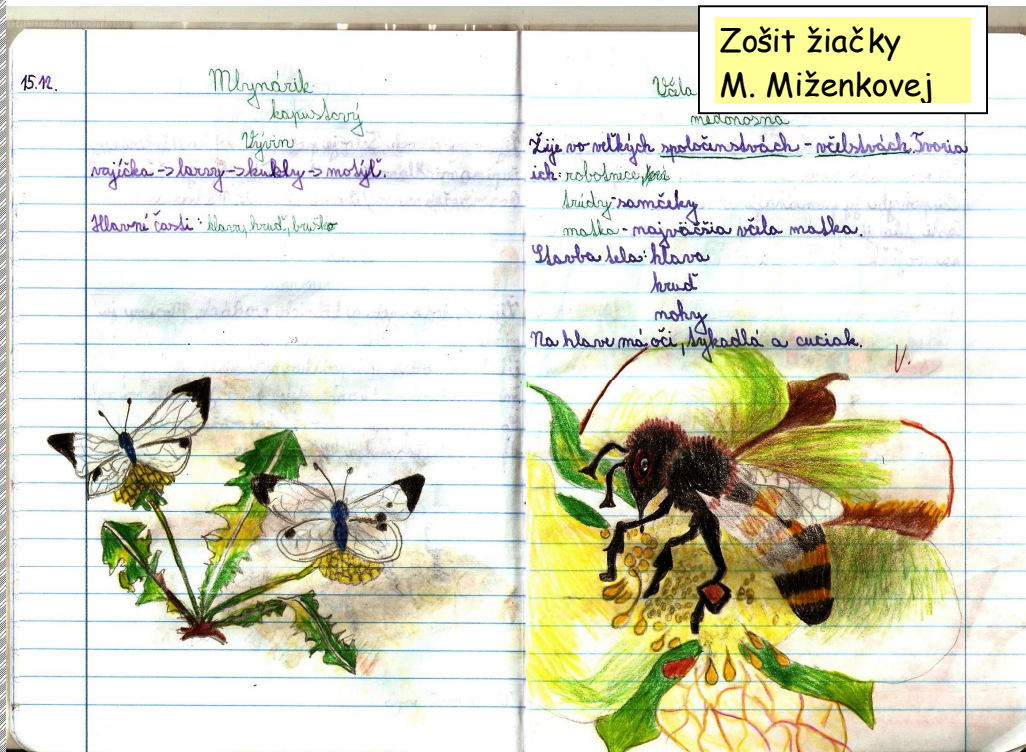 Zošit žiačky
M. Miženkovej
15.12.
Mlynárik
kapustový
Vývin
vajíčka -> larvy -> kukly -> motýľ.
Hlavné časti: hlava, hruď, bruško
Včela
medonosna
Žije vo veľkých spoločinstvách - včelstvách. Tvoria
ich: robotnice,
trúdy - samčeky
matka - najväčšia včela matka.
Stavba tela: hlava
hruď
nohy
Na hlave má oči, tykadlá a cuciak.
V.